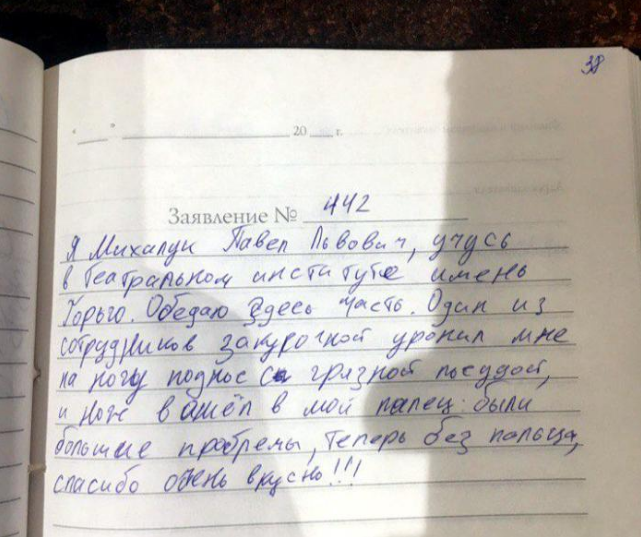 38
"___" ___ 20___ г.
Заявление № 442
Я Михалук Павел Львович, учусь
в театральном институте имень
Горьго. Обедаю здесь часть. Один из
сотрудников закурочной уронил мне
на ногу поднос с грязной посудой,
и нож вошёл в мой палец. были
большие проблемы, теперь без пальца,
спасибо очень вкусно!!!